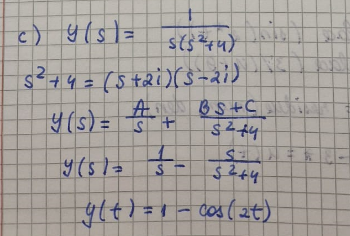 c) y(s) = 1/(s(s²+4))
s²+4 = (s+2i)(s-2i)
y(s) = A/s + (Bs+C)/(s²+4)
y(s) = 1/s - s/(s²+4)
y(t) = 1 - cos(2t)